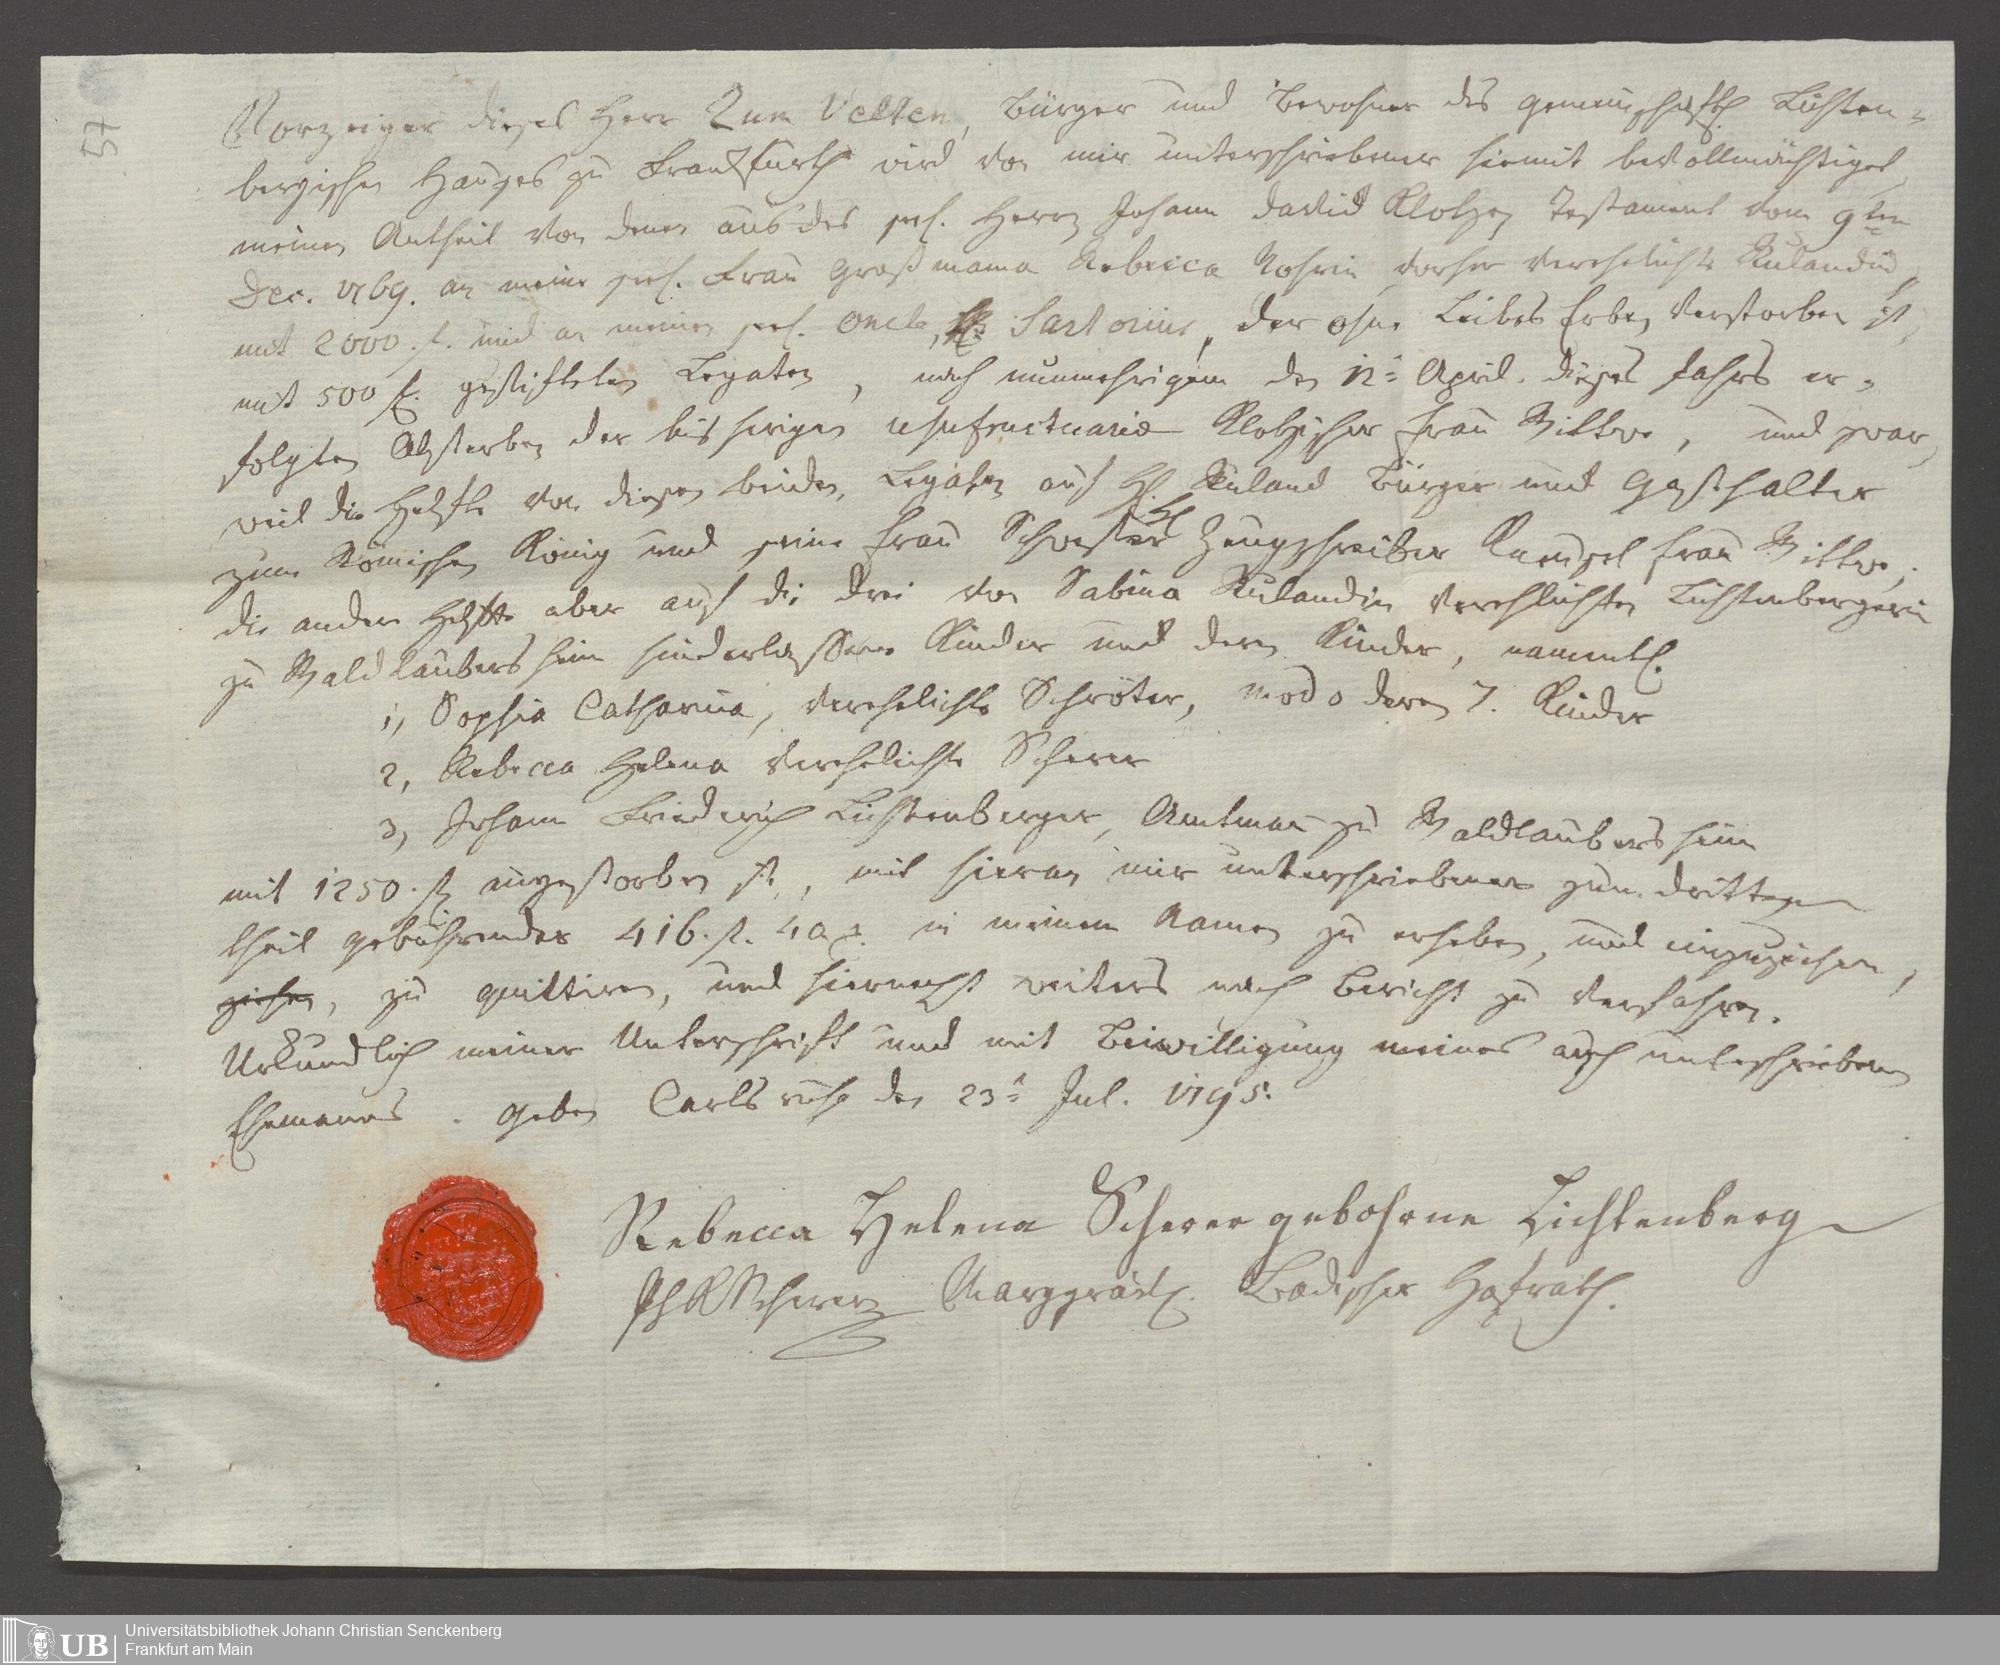 57
Vorzeiger dieses Herr Zum Velten, Bürger und Bewohner des gemeinschaftl. Lichten-
bergischen Hauses zu Frankfurth wird von mir unterschriebener hiemit bevollmächtiget
meinen Antheil von denen aus des sel. Herrn Johann David Klotzen Testament vom 9ten
Dec. 1769. an meine sel. Frau Großmama Rebecca Rohrin vorher verehelichte Rulandin
mit 2000. f. und an meinen sel. Oncle, Sartorius, der ohne Leibes Erben verstorben ist,
mit 500 f. gestifteten Legaten, nach nunmehrigem den 12. April. dieses Jahrs er-
folgten Absterben der bisherigen usufructuariae Klotzischer Frau Wittwe, und zwar,
weil die Helfte von diesen beiden Legaten auf H. Ruland Bürger und Gasthalter
zum Römischen König und seine Frau Schwester Zeugschreiber Frau Wittwe,
die andere Helfte aber auf die drei von Sabina Rulandin verehlichten Lichtenbergerin
zu Waldlaubersheim hinderlassene Kinder und deren Kinder, namentl.
1, Sophia Catharina, verehelichte Schröter, modo deren 7. Kinder
2, Rebecca Helena verehelichte Scherer
3, Johann Friederich Lichtenberger, Amtman zu Waldlaubersheim
mit 1250. f. angestorben ist, mit hieran mir unterschriebener zum dritten
theil gebührender 416. f. 40 x. in meinem Namen zu erheben, und einzuziehen,
ziehen, zu quittiren, und hiernechst weiters nach Bericht zu verfahren.
Urkundlich meiner Unterschrift und mit Beiwilligung meines auch unterschriebenen
Ehemanns. Geben Carlsruhe den 23. Jul. 1795.
Rebecca Helena Scherer gebohrne Lichtenberg
Scherer Marggräfl. Badischer Hofrath.
UB
Universitätsbibliothek Johann Christian Senckenberg
Frankfurt am Main